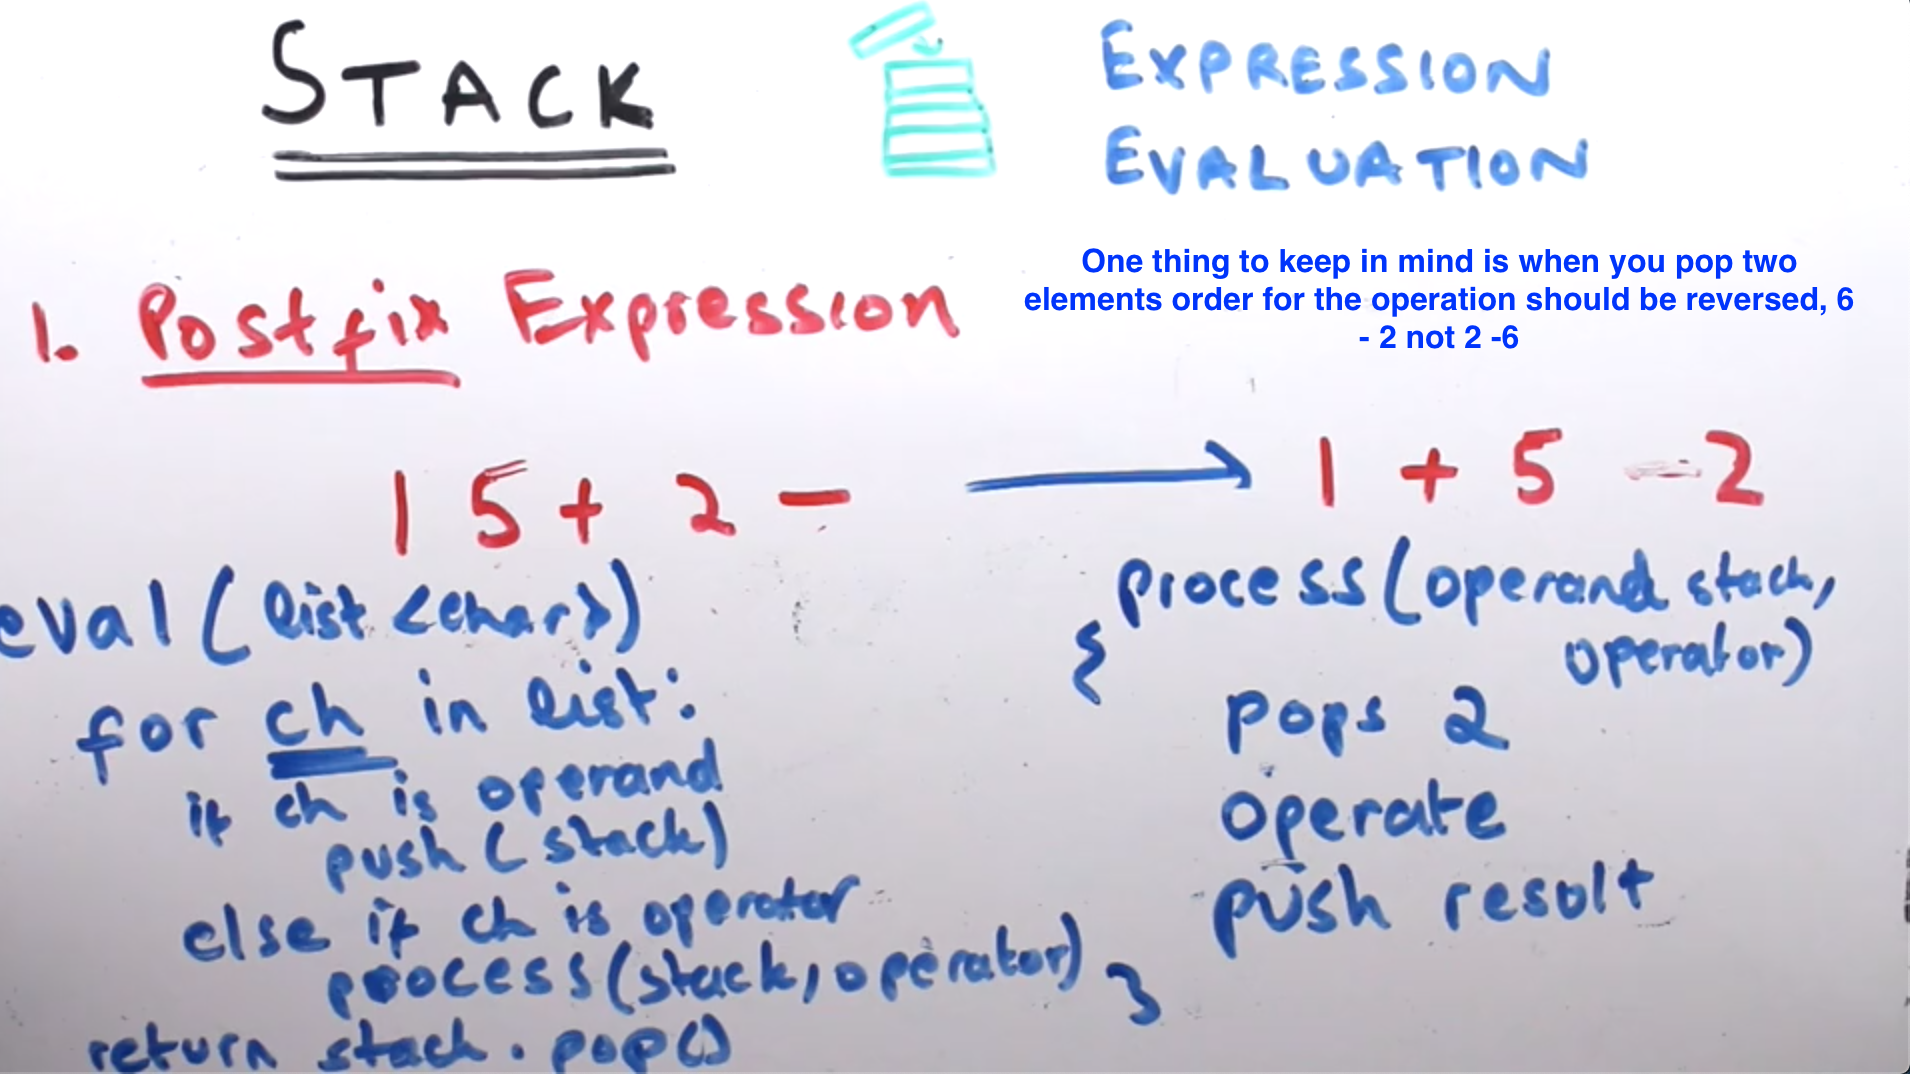 STACK
EXPRESSION
EVALUATION
One thing to keep in mind is when you pop two
elements order for the operation should be reversed, 6
- 2 not 2 -6
1. Postfix Expression
1 5 + 2 −
1 + 5 − 2
eval ( list <char>)
for ch in list:
if ch is operand
push ( stack)
else if ch is operator
process(stack, operator)
return stack . pop()
process(operand stack,
operator)
{
pops 2
operate
push result
}